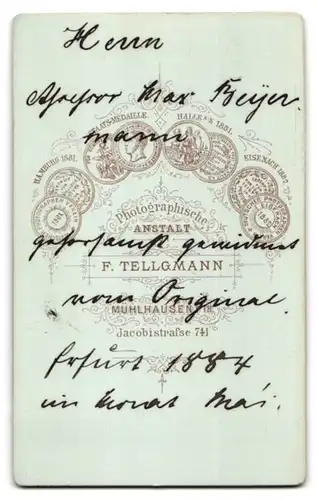 Herrn
Assessor Max Beyer-
mann
STAATS-MEDAILLE.
HALLE A/S. 1881.
HAMBURG 1881.
EISENACH 1882.
Photographische
ANSTALT
gehorsamst gewidmet
F. TELLGMANN
vom Original.
MÜHLHAUSEN i/Th.
Jacobistraße 741
Erfurt 1884
im Monat Mai.